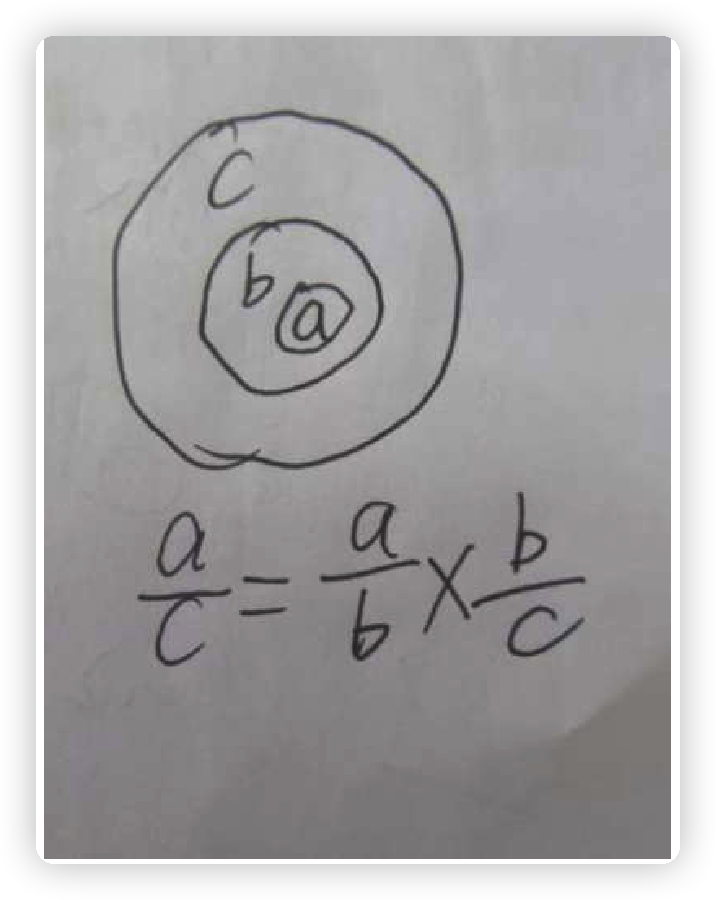 c
b
a
a/c = a/b × b/c